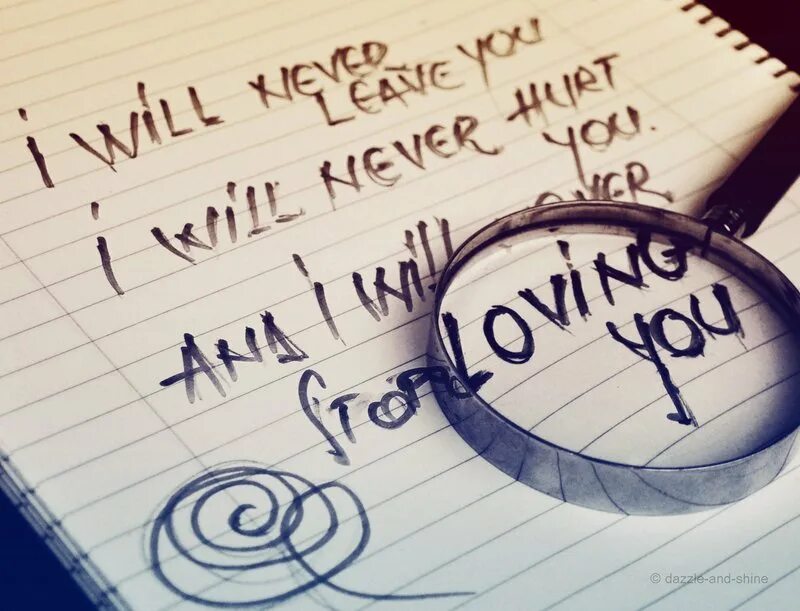 I WILL NEVER
LEAVE YOU
I WILL NEVER HURT
YOU.
AND I WILL
STOP LOVING
YOU
© dazzle-and-shine